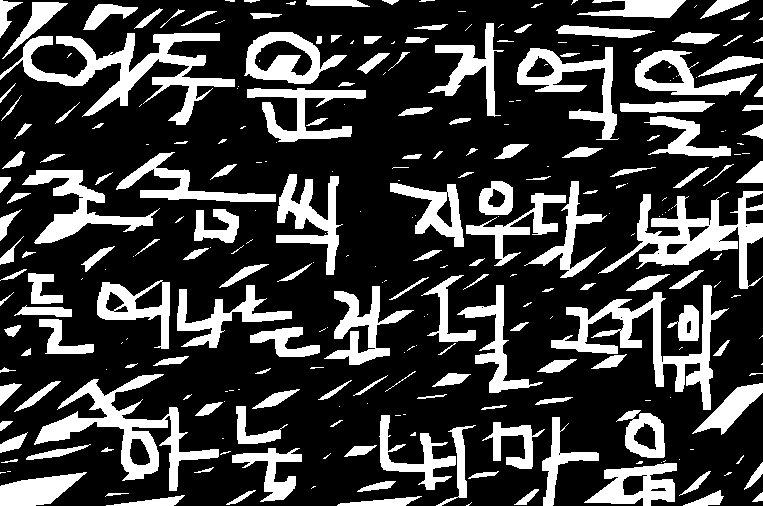 어두운 기억을
조금씩 지우다
들어나는건 널 그리워
하는 내마음